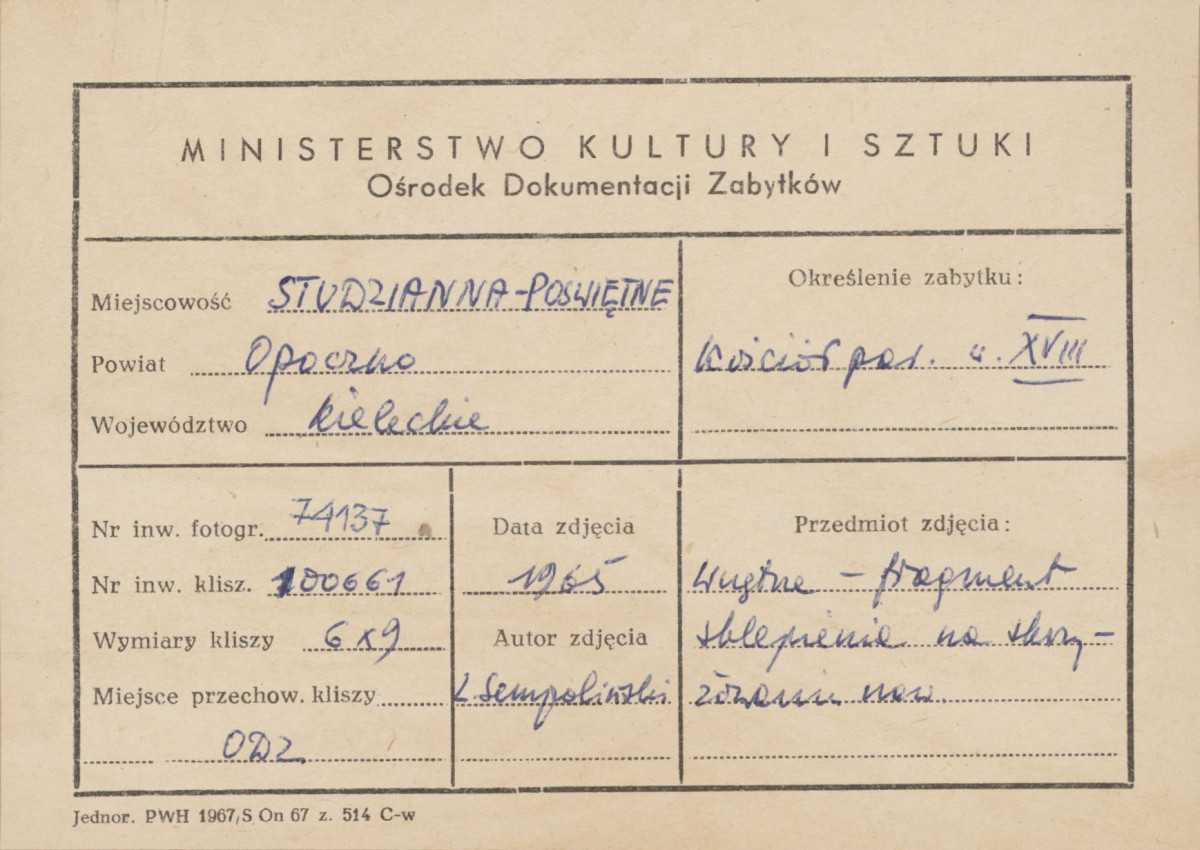 MINISTERSTWO KULTURY I SZTUKI
Ośrodek Dokumentacji Zabytków
Miejscowość STUDZIANNA-POŚWIĘTNE
Powiat Opoczno
Województwo kieleckie
Określenie zabytku:
Kościół par. w. XVIII
Nr inw. fotogr. 74137
Nr inw. klisz. 100661
Wymiary kliszy 6x9
Miejsce przechow. kliszy
ODZ
Data zdjęcia
1965
Autor zdjęcia
Ł Sempoliński
Przedmiot zdjęcia:
wnętrze – fragment
sklepienia na skrzy-
żowaniu naw.
Jednor. PWH 1967/S On 67 z. 514 C-w